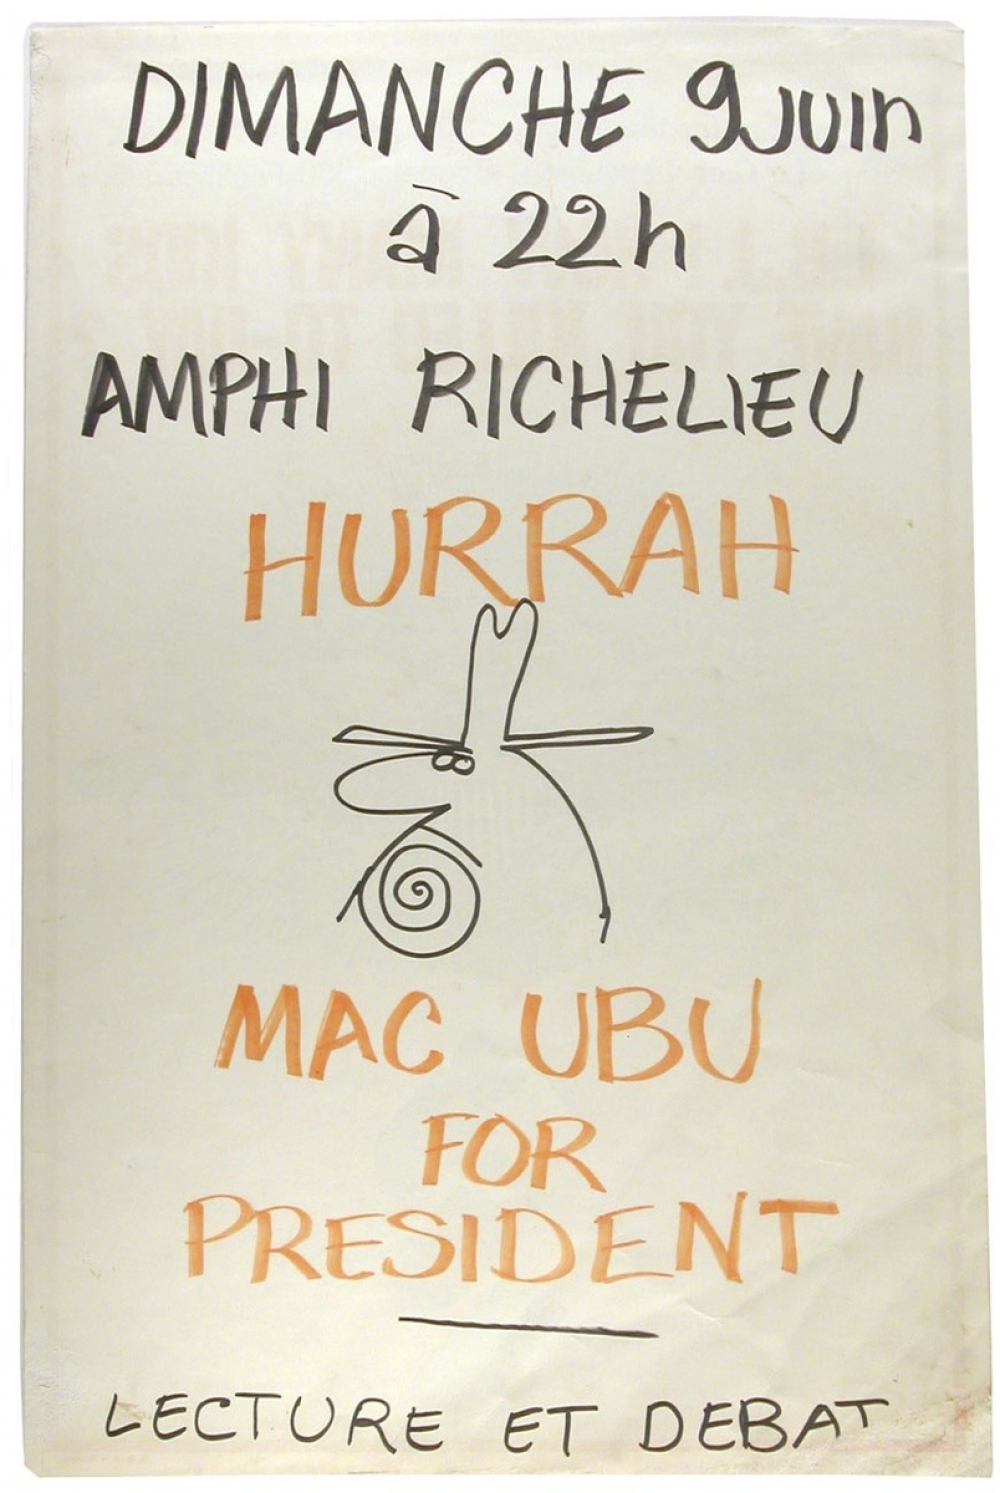 DIMANCHE 9 JUIN
à 22h
AMPHI RICHELIEU
HURRAH
MAC UBU
FOR
PRESIDENT
LECTURE ET DEBAT